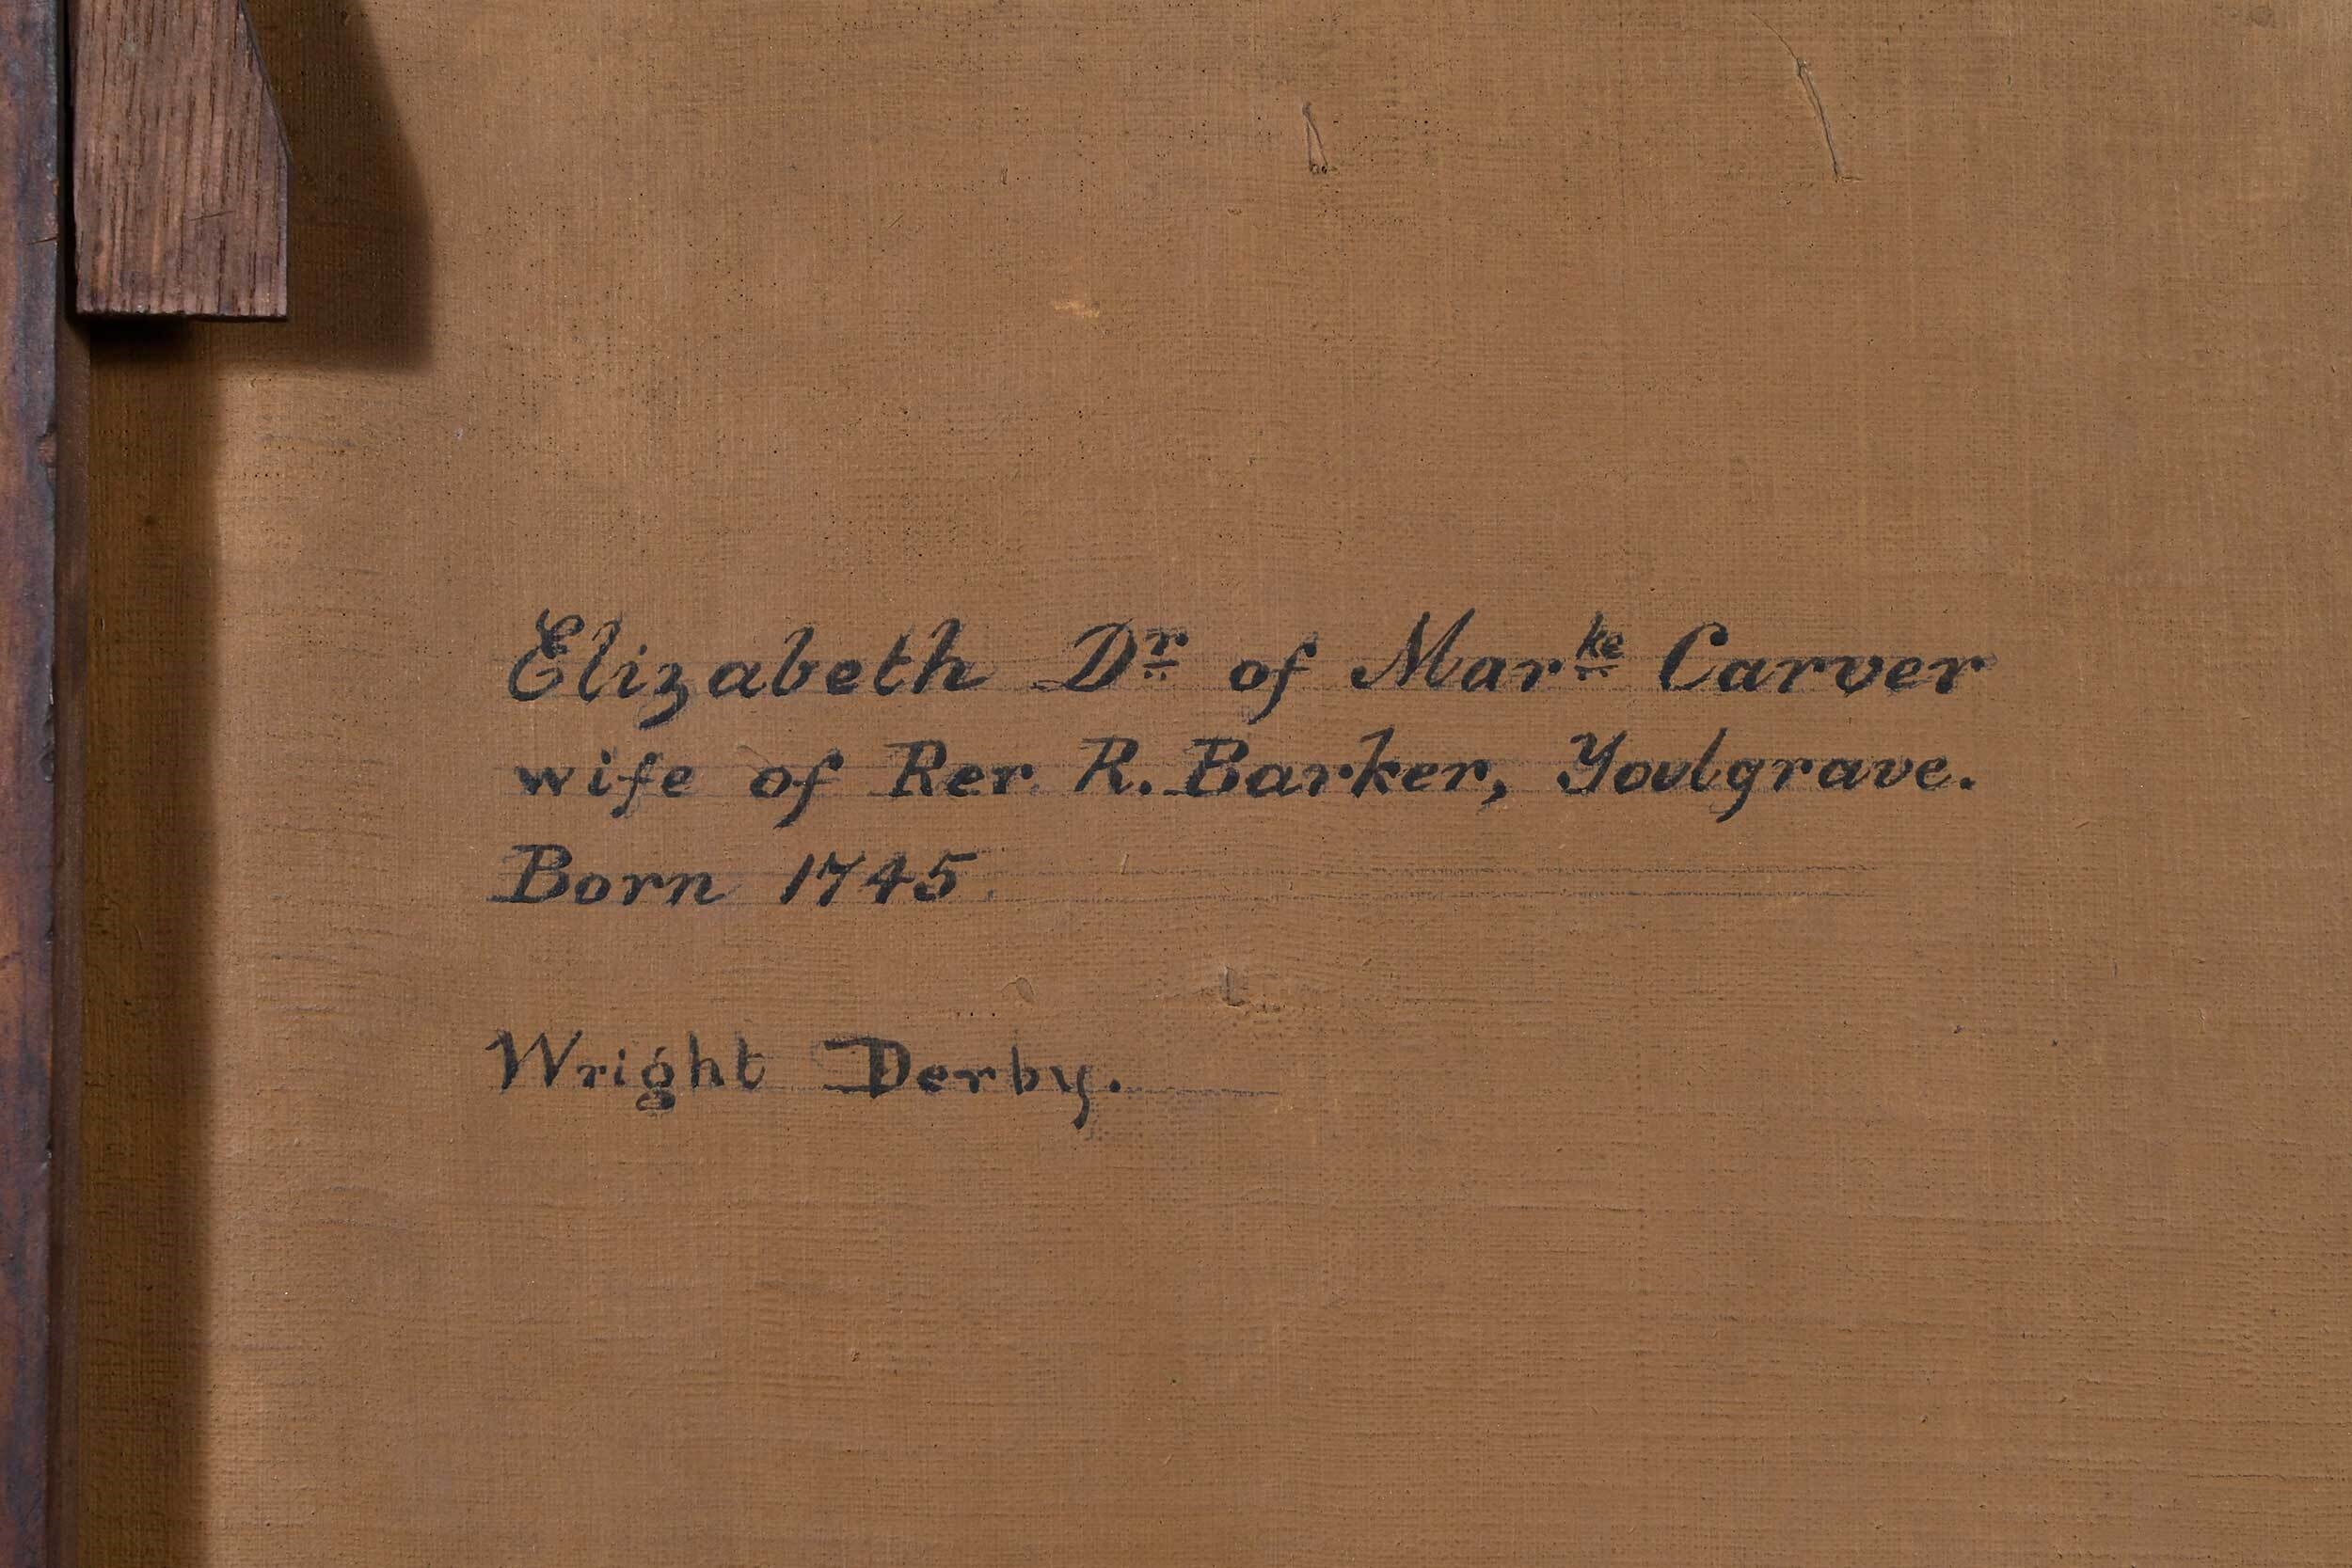 Elizabeth Dr of Marke Carver
wife of Rev. R. Barker, Youlgrave.
Born 1745.
Wright Derby.